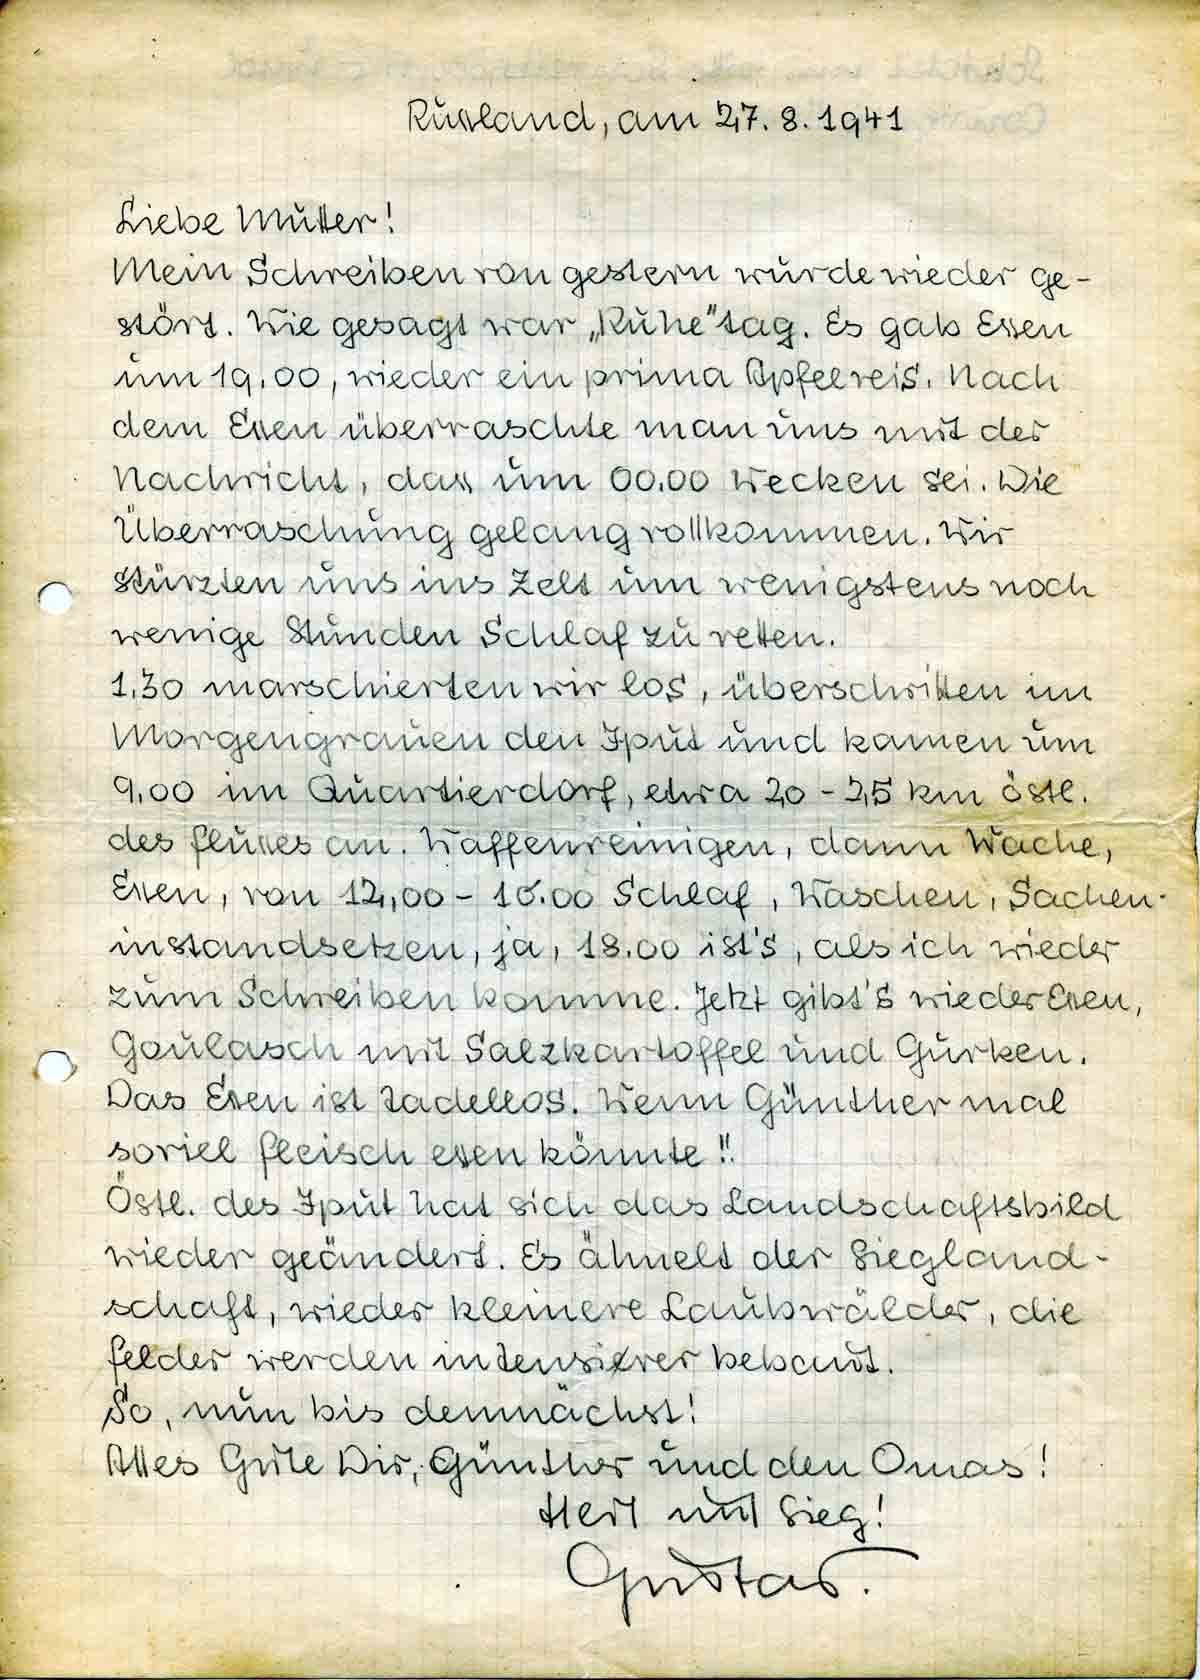 Russland, am 27.8.1941
Liebe Mutter!
Mein Schreiben von gestern wurde wieder ge-
stört. Wie gesagt war „Ruhe"tag. Es gab Essen
um 19.00, wieder ein prima Apfelreis. Nach
dem Essen überraschte man uns mit der
Nachricht, dass um 00.00 Wecken sei. Die
Überraschung gelang vollkommen. Wir
stürzten uns ins Zelt um wenigstens noch
wenige Stunden Schlaf zu retten.
1.30 marschierten wir los, überschritten im
Morgengrauen den Iput und kamen um
9.00 im Quartierdorf, etwa 20 - 25 km östl.
des Flusses an. Waffenreinigen, dann Wache,
Essen, von 12,00 - 16.00 Schlaf, Waschen, Sachen-
instandsetzen, ja, 18.00 ist's, als ich wieder
zum Schreiben komme. Jetzt gibt's wieder Essen,
Goulasch mit Salzkartoffel und Gurken.
Das Essen ist tadellos. Wenn Günther mal
soviel Fleisch essen könnte!!
Östl. des Iput hat sich das Landschaftsbild
wieder geändert. Es ähnelt der Siegland-
schaft, wieder kleinere Laubwälder, die
Felder werden intensiver bebaut.
So, nun bis demnächst!
Alles Gute Dir, Günther und den Omas!
Heil und Sieg!
Gustav.